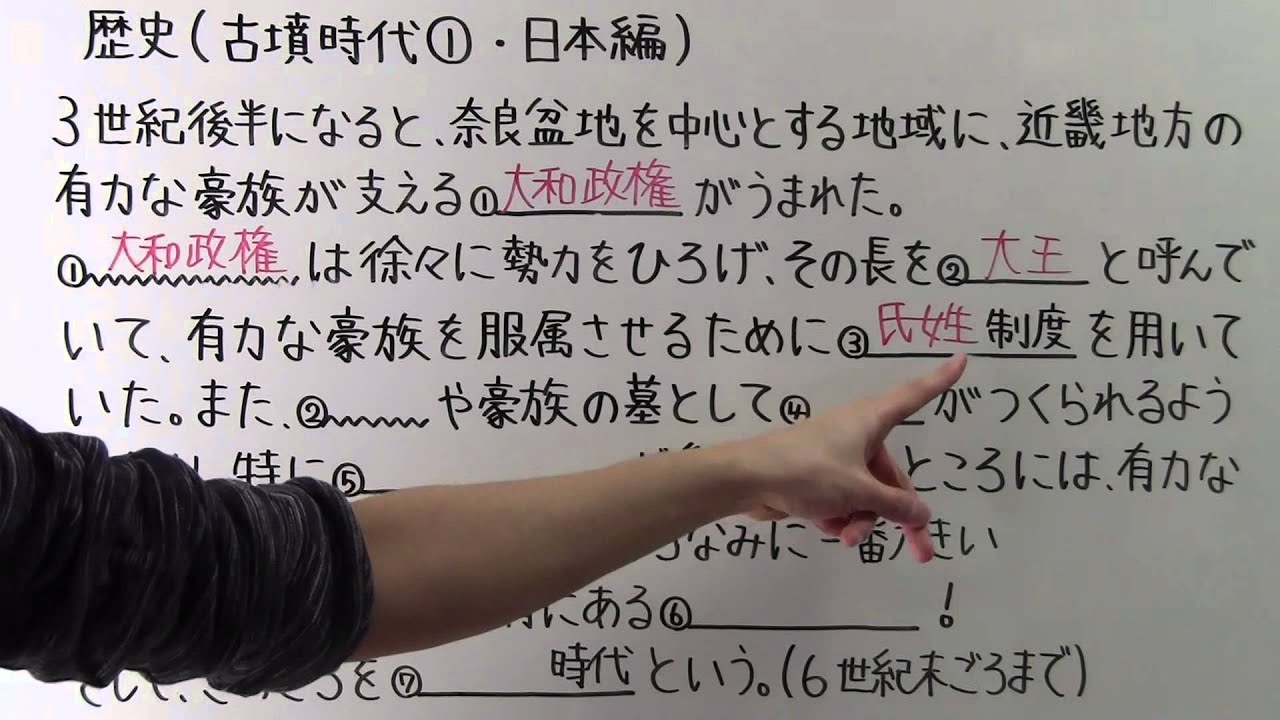 歴史(古墳時代①・日本編)
3世紀後半になると、奈良盆地を中心とする地域に、近畿地方の
有力な豪族が支える①大和政権がうまれた。
①大和政権は徐々に勢力をひろげ、その長を②大王と呼んで
いて、有力な豪族を服属させるために③氏姓制度を用いて
いた。また、②や豪族の墓として④がつくられるよう
特に⑤ところには、有力な
なみに一番大きい
にある⑥!
を⑦時代という。(6世紀末ごろまで)